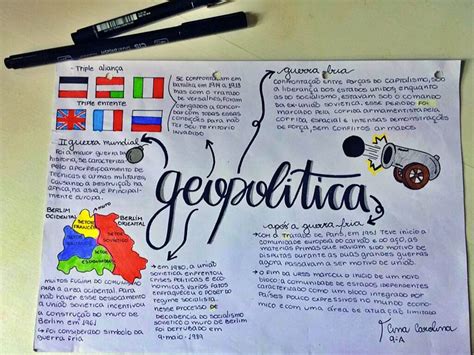 - Triple aliança
Triple entente
Se confrontaram em
batalha em 1914 a 1918
mas com o tratado
de versalhes, foram
obrigados a concor
dar com todas essas
condições, para não
ter seu território
invadido
guerra fria
confrontação entre forças do capitalismo, sob
a liderança dos estados unidos enquanto
as do socialismo, estavam sob o comando
da ex-união soviética, esse período foi
marcado pela corrida armamentista pela
corrida, espacial e intensas demonstrações
de força, sem conflitos armados.
II guerra mundial
Foi a maior guerra da
história, se caracteriza
pelo aperfeiçoamento de
técnicas e armas militares
causando a destruição na
áfrica, ásia e, principal-
mente europa.
geopolítica
BERLIM
OCIDENTAL
muro
BERLIM
ORIENTAL
SETOR
FRANCÊS
SETOR
SOVIÉTICO
muitos fugiam do comunismo
para a área ocidental. Para
não haver esse desligamento
a união soviética incentivou
a construção do muro de
Berlim em 1961
→ Foi considerado símbolo da
guerra fria
→ em 1980, a união
soviética enfrentou
crises políticas e eco
nômicas que vários
enfraqueceu o poder
do regime socialista.
nesse processo de
decadência do socialismo
soviético o muro de Berlim
foi derrubado em
9-maio-1989
após a guerra fria
→ com o tratado de Paris, em 1951 teve início a
comunidade europeia do carvão e do aço, as
matérias primas que haviam sido motivo de
disputas durante as duas grandes guerras
agora passavam a ser motivo de união.
→ o fim da URSS marcou o início de um novo
bloco, a comunidade de estados independentes
países pouco expressivos no mundo econô
mico e com uma área de atual tão limitada.
Carolina
9·A